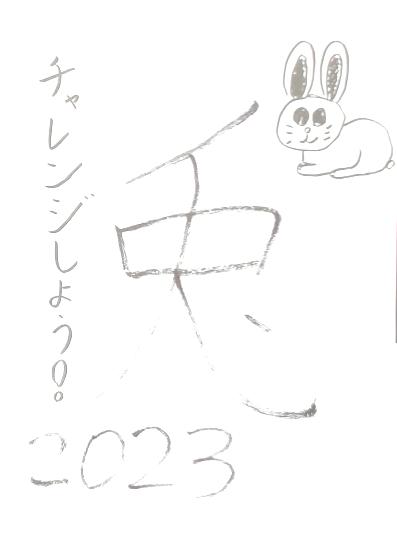 チャレンジしよう!!
兎
2023